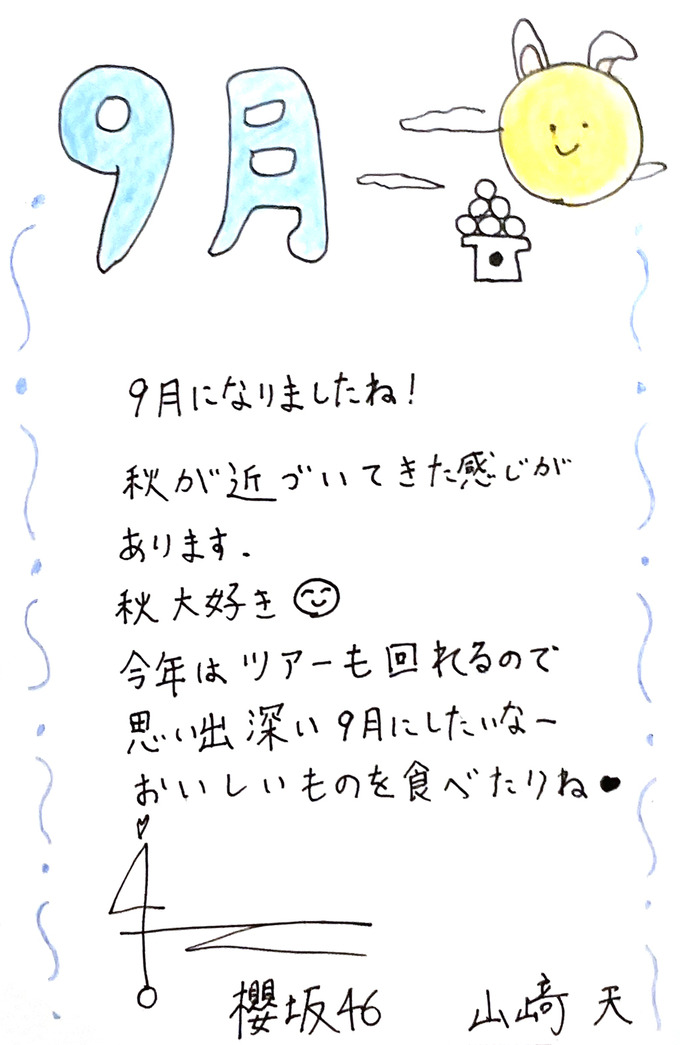 9月
9月になりましたね!
秋が近づいてきた感じが
あります.
秋大好き
今年はツアーも回れるので
思い出深い9月にしたいなー
おいしいものを食べたりね♥
櫻坂46 山﨑 天